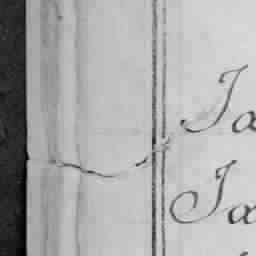 Ja
Ja